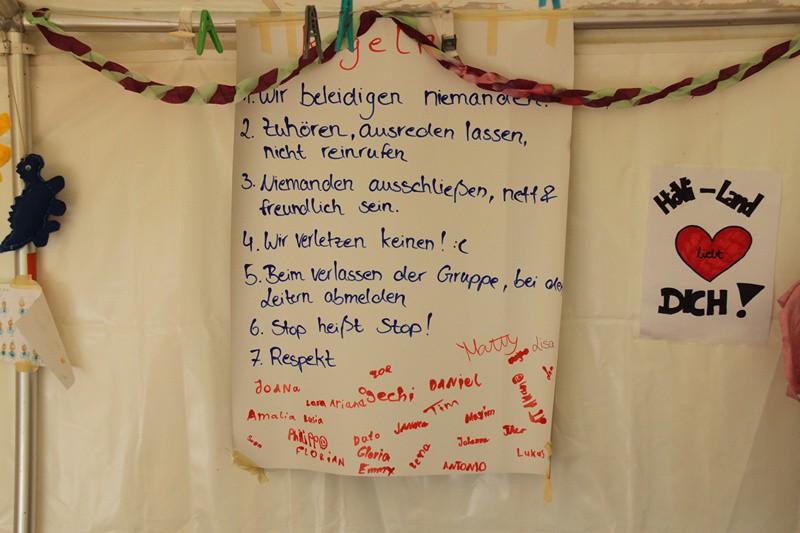 1. Wir beleidigen niemanden!
2. Zuhören, ausreden lassen,
nicht reinrufen
3. Niemanden ausschließen, nett &
freundlich sein.
4. Wir verletzen keinen! :c
5. Beim verlassen der Gruppe, bei
Leitern abmelden
6. Stop heißt Stop!
7. Respekt
Matty Lisa
zoe
JoANa
Lara Ariana Ogechi DANiEL
Amalia Luisa Tim Maxim
Janeka
Philipp Dato Johanna
FLORiAN Gloria Lena Lukas
Emmy ANTONIO
HaVi-Land
liebt
DICH!